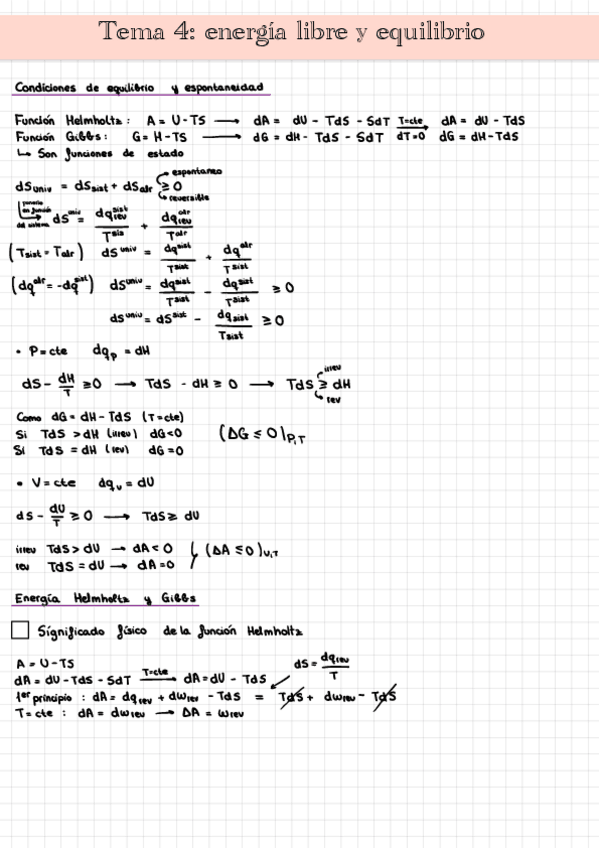 Tema 4: energía libre y equilibrio
Condiciones de equilibrio y espontaneidad
Función Helmholtz: A = U-TS → dA = dU - TdS - SdT T=cte → dT=0 dA = dU - TdS
Función Gibbs: G = H-TS → dG = dH - TdS - SdT dG = dH-TdS
↳ Son funciones de estado
espontaneo
dSuniv = dSsist + dSalr ≥ 0
reversible
ponerlo en función del sistema
dS^univ = dq^sist_rev / T^sis + dq^alr_rev / T^alr
(Tsist = Talr) dS^univ = dq^sist / Tsist + dq^alr / Tsist
(dq^alr = -dq^sist) dS^univ = dq^sist / Tsist - dq^sist / Tsist ≥ 0
dS^univ = dS^sist - dqsist / Tsist ≥ 0
• P=cte dq_p = dH
irrev
dS - dH/T ≥0 → TdS - dH ≥ 0 → TdS ≥ dH
rev
Como dG = dH-TdS (T=cte)
Si TdS > dH (irrev) dG<0 (ΔG ≤ 0)P,T
Si TdS = dH (rev) dG =0
• V=cte dq_v = dU
dS - dU/T ≥ 0 → TdS ≥ dU
irrev TdS > dU → dA < 0 (ΔA ≤0)V,T
rev TdS = dU → dA =0
Energía Helmholtz y Gibbs
Significado físico de la función Helmholtz
A = U-TS dS = dqrev / T
dA = dU - TdS - SdT T=cte → dA = dU - TdS
1er principio : dA = dqrev + dwrev - TdS = TdS + dwrev - TdS
T=cte : dA = dwrev → ΔA = wrev